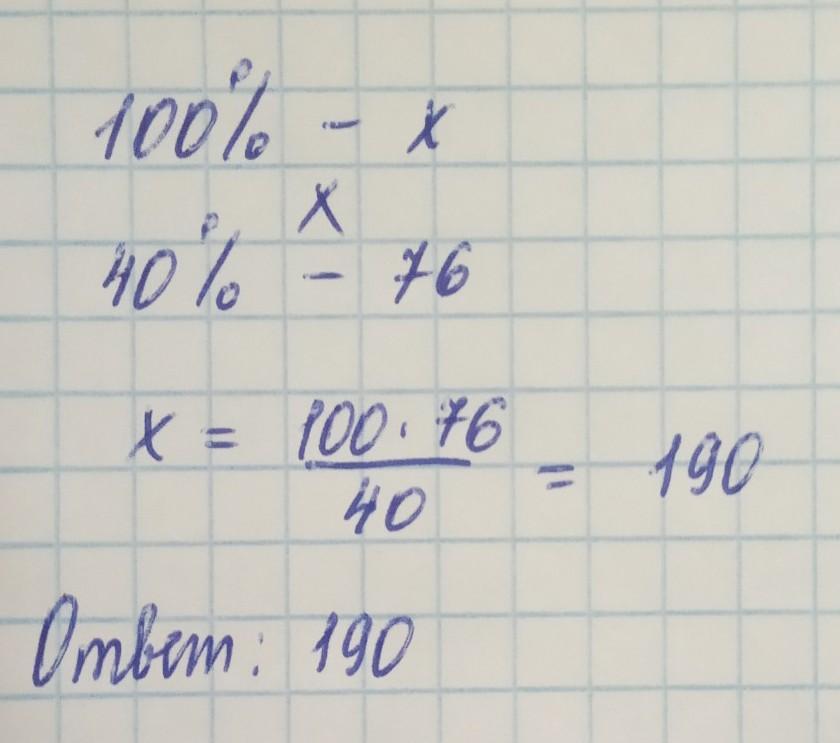 100% - x
x
40% - 76
x = 100 · 76 / 40 = 190
Ответ: 190